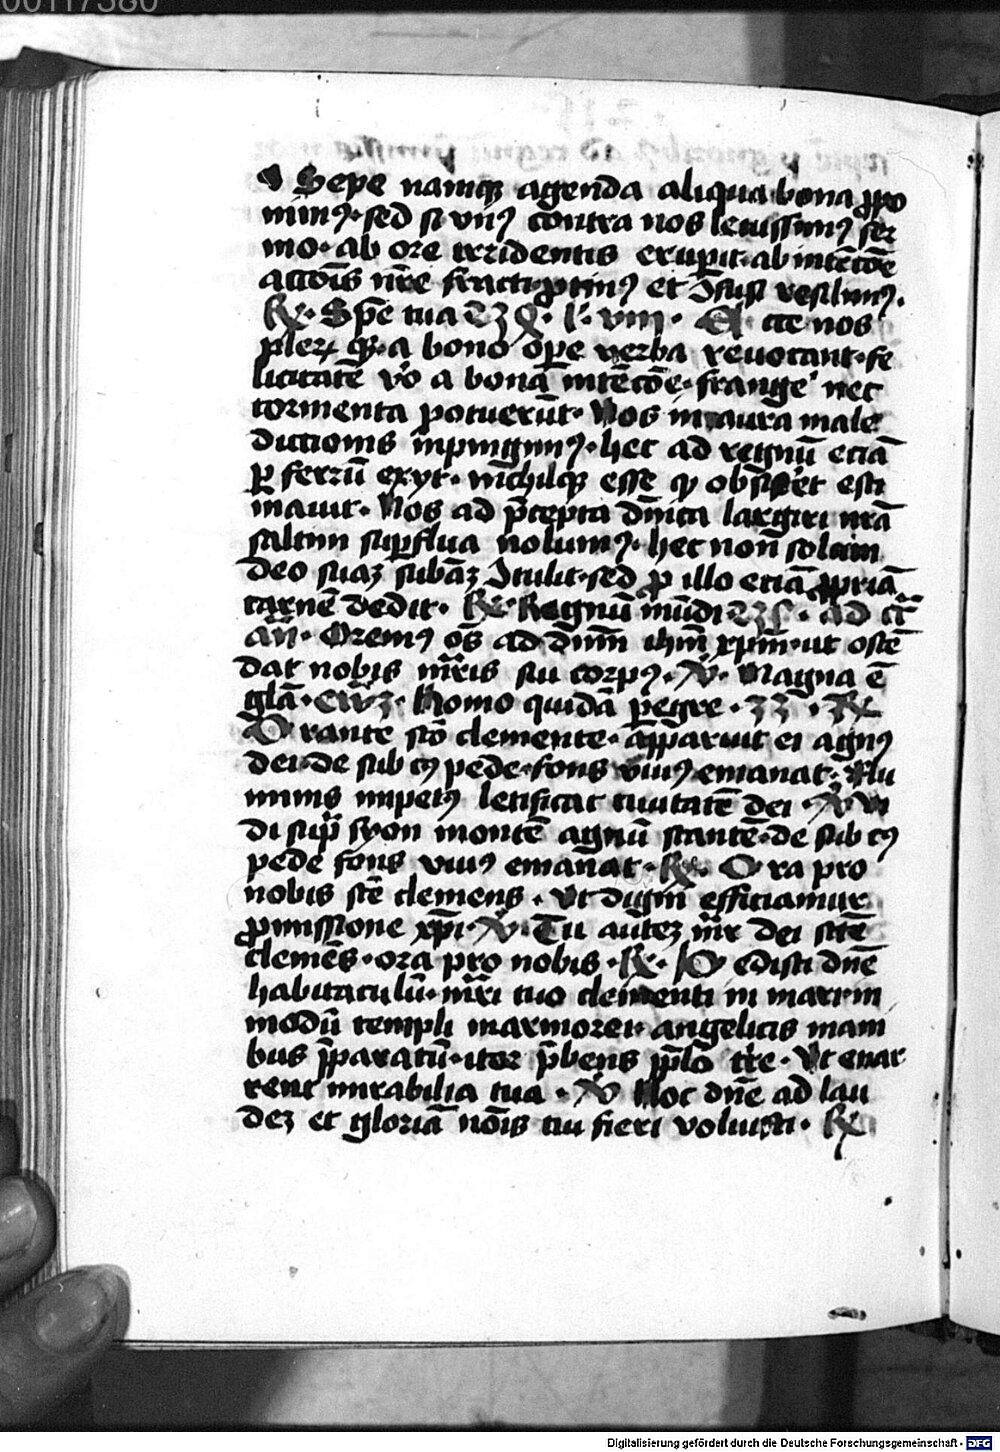 00117380
Sepe namqꝫ agenda aliqua bona ꝓpo
nimꝰ· sed si vnꝰ contra nos leuissimꝰ ser
mo· ab ore irridentis eruperit· ab intēcōe
acciōis nr̄e fracti ꝓtinꝰ et ꝯfusi resilimꝰ·
R̄· Spe tua l· viii· Et ecce nos
pleꝝ qꝫ· a bono oꝑe verba reuocant· fe
licitatē v̊o a bona intēcōe· frange᷑ nec
tormenta potuerūt· Nos in aura male
dictionis inpingimꝰ· hec ad regnū eciā
ꝑ ferrū exijt· nichilqꝫ esse qd̄ obsisteret esti
mauit· Nos ad p̄cepta dn̄ica largiri nr̄a
saltim suꝑflua nolumꝰ· hec non̄ solum
deo suaꝫ subāꝫ ꝯtulit· sed ꝓ illo eciā ꝓpriā
carnē dedit· R̄ Regnū mūdi· ad
an̄· Oremꝰ om̄s ad dnm̄ ihm̄ xp̄m· ut ostē
dat nobis mr̄is sui corpꝰ· V̄· Magna ē
glā· ew̄ꝫ· Homo quidā ꝑegre· R̄
Orante scō clemente· apparuit ei agnꝰ
dei· de sub cꝰ pede· fons viuꝰ emanat· Flu
minis impetꝰ letificat ciuitatē dei· V̄ Vi
di sup̄ syon montē agnū stantē· de sub cꝰ
pede fons viuꝰ emanat· R̄· Ora pro
nobis scē clemens· vt digni efficiamur
ꝓmissione xp̄i· V̄· Tu auteꝫ mr̄ dei scē
clemēs· ora pro nobis· R̄· Dedisti dn̄e
habitaculū· mr̄i tuo clementi in mari· in
modū templi marmorei· angelicis mani
bus p̄paratū· iter p̄bens pp̄lo tr̄e· Vt enar
rent mirabilia tua· V̄ Hoc dn̄e ad lau
deꝫ et gloriā nōis tui fieri voluisti· R̄
Digitalisierung gefördert durch die Deutsche Forschungsgemeinschaft - DFG